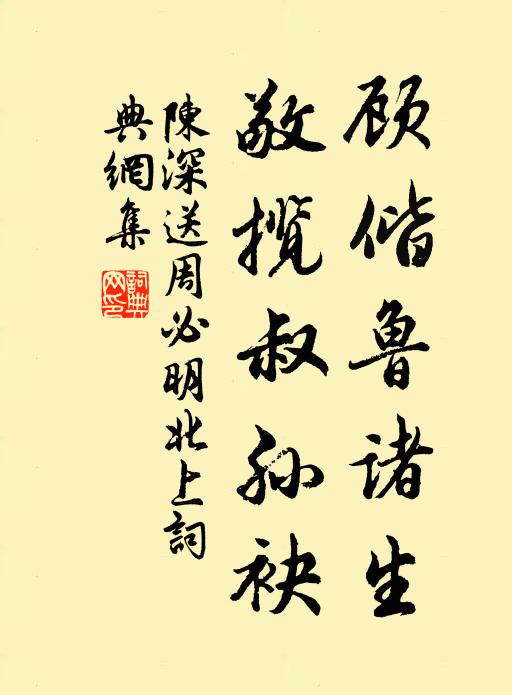 顾偕鲁诸生
敬揽叔孙袂
陳深送周必明北上詞
典網集
詞典網印